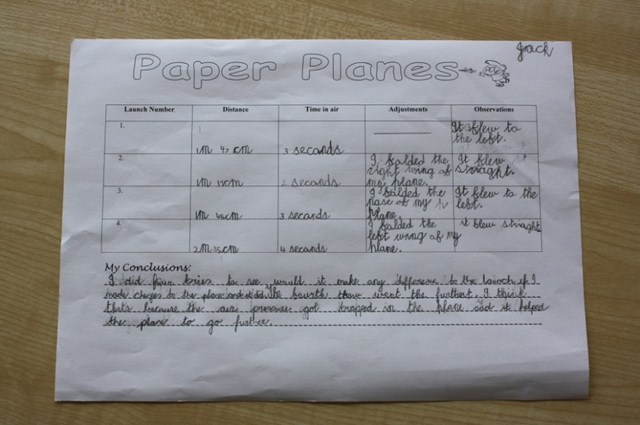 Jack
Paper Planes
Launch Number Distance Time in air Adjustments Observations
1. 3 seconds It flew to
the left.
1m 47cm
2. I folded the It flew
right wing of straight.
1m 2 seconds my plane.
3. I folded the It flew to the
nose of my left.
1m 3 seconds plane.
4. I folded the it flew straight
left wing of my
2m 4 seconds plane.
My Conclusions:
I did four tries to see would it make any difference to the launch if I
made to the plane the fourth went the furthest. I think
thats because the air got trapped in the plane and it helped
the plane to go further.